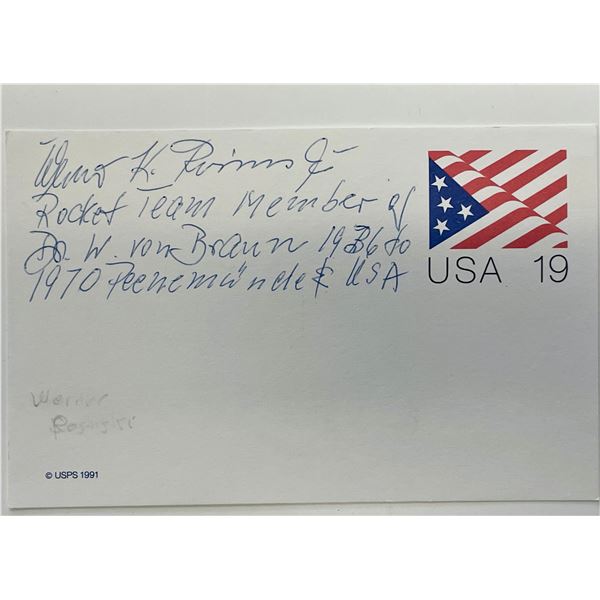 Werner K.
Rocket Team Member of
Dr. W. von Braun 1936 to
1970 Peenemünde & USA
USA 19
Werner
© USPS 1991